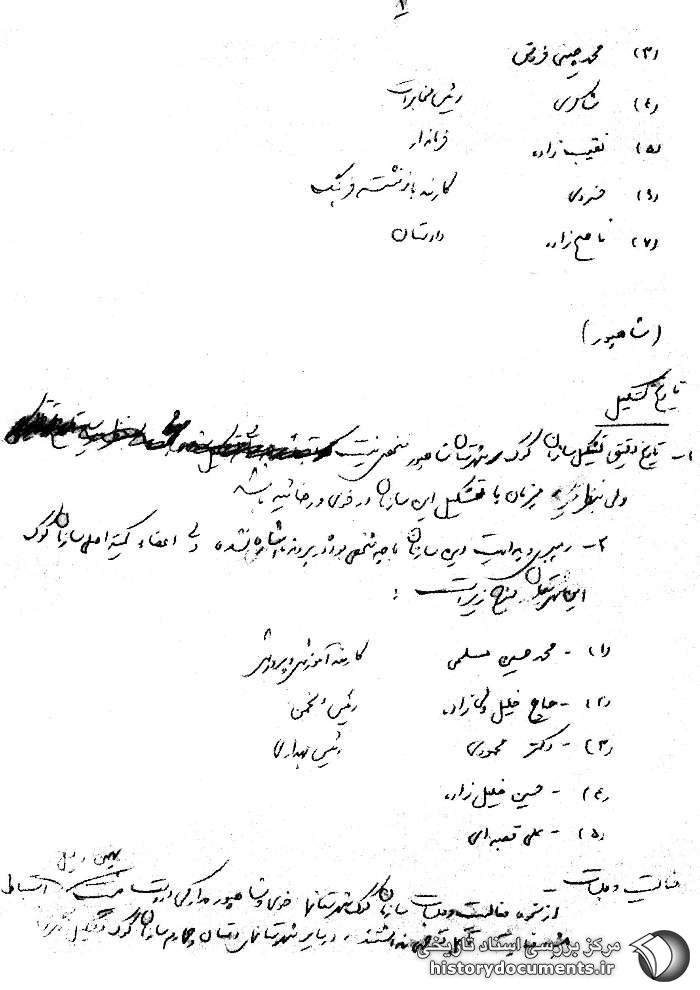 ۲
(۳) محمد چینی فروش
(٤) شاکری رئیس مخابرات
(۵) نقیب زاده فرماندار
(٦) خسروی کارمند بازنشسته فرهنگ
(۷) ناصح زاده دادستان
(شاهپور)
تاریخ تشکیل
۱- تاریخ دقیق تشکیل سازمان کوک شهرستان شاهپور مشخص نیست
ولی همزمان با تشکیل این سازمان در خوی و رضائیه باشد
۲- رهبری و هدایت این سازمان با چه شخصی بوده در پرونده اشاره نشده ولی اعضاء کمیته اصلی سازمان کوک
این شهرستان بشرح زیر است :
(۱) - محمد حسین مسلمی کارمند آموزش و پرورش
(۲) - حاج خلیل ولی زاده رئیس انجمن
(۳) - دکتر محمودی رئیس بهداری
(٤) - حسین خلیل زاده
(۵) - علی قصبه ای
فعالیت و جلسات -
از نحوه فعالیت و جلسات سازمان کوک شهرستانهای خوی و شاهپور مدارکی در دست نیست
نداشتند و سایر شهرستانهای استان و سازمان کوک تشکیل
مرکز بررسی اسناد تاریخی
historydocuments.ir